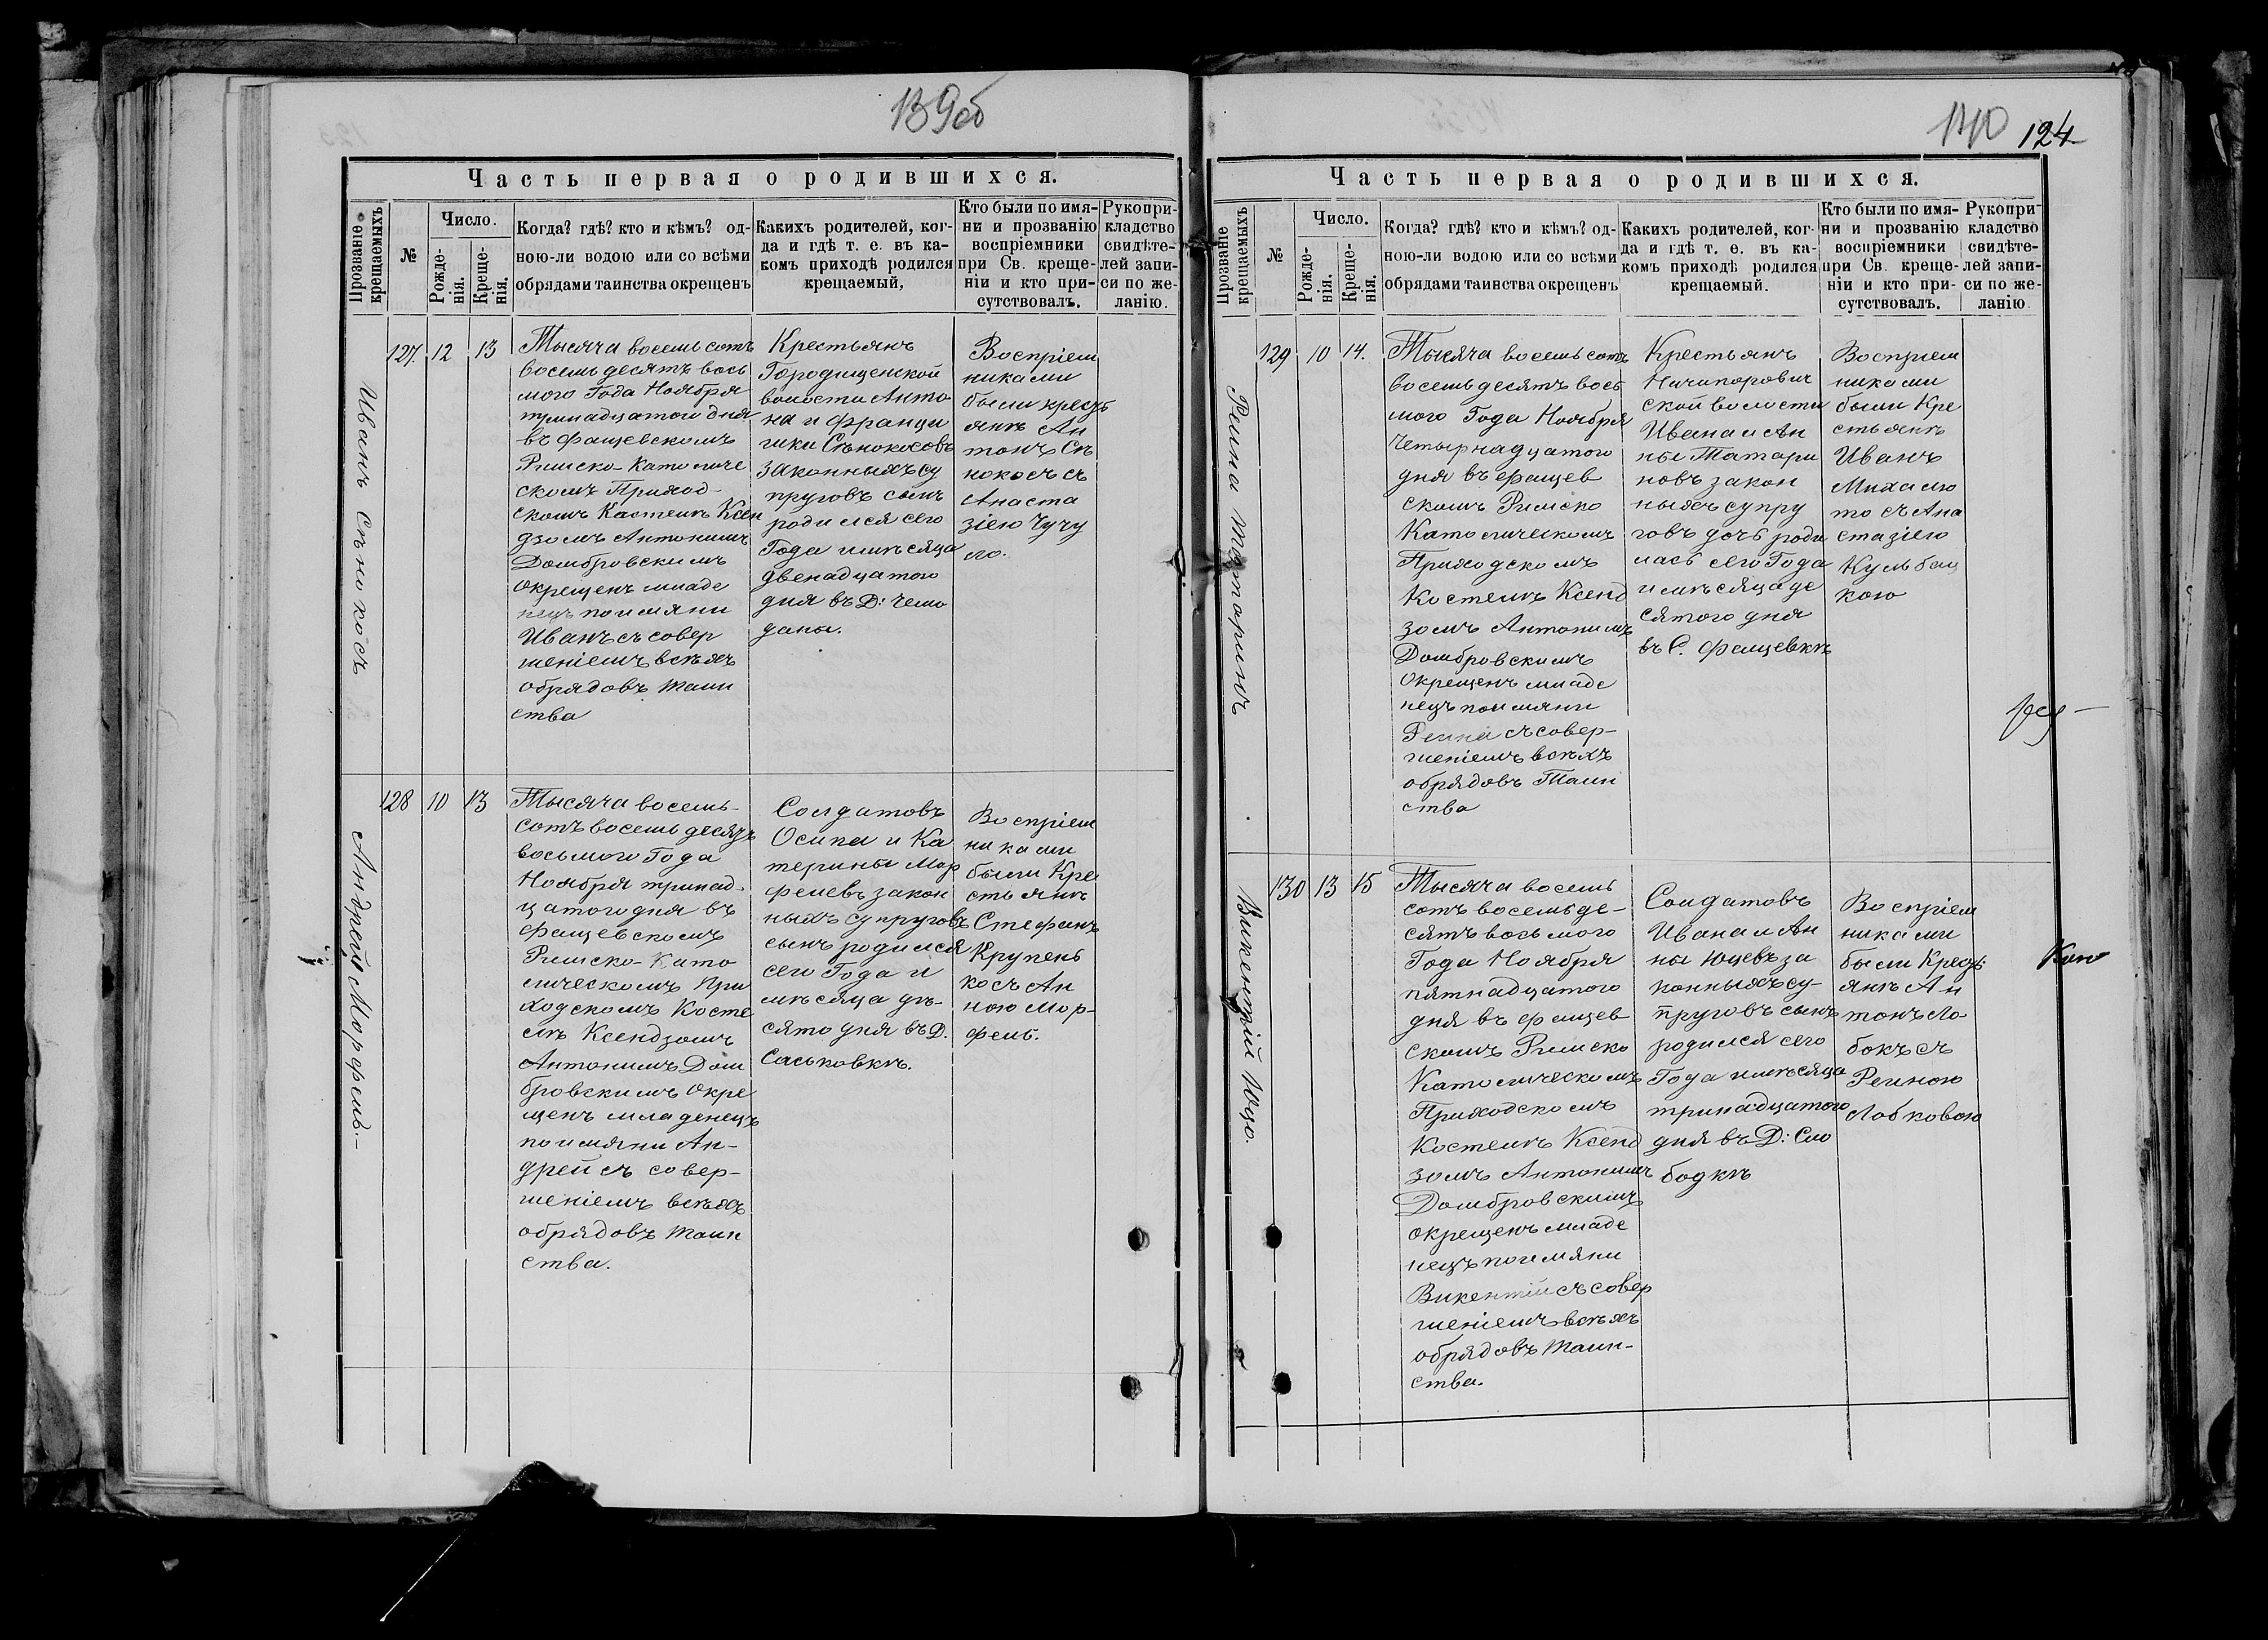 139об
Часть первая о родившихся.
Прозваніе крещаемыхъ
№
Число.
Рожде-
нія.
Креще-
нія.
Когда? гдѣ? кто и кѣмъ? од-
ною-ли водою или со всѣми
обрядами таинства окрещенъ
Какихъ родителей, ког-
да и гдѣ т. е. въ ка-
комъ приходѣ родился
крещаемый,
Кто были по имя-
ни и прозванію
воспріемники
при Св. креще-
ніи и кто при-
сутствовалъ.
Рукопри-
кладство
свидѣте-
лей запи-
си по же-
ланію.
Иванъ Сѣнокосъ
127. 12 13
Тысяча восемь сотъ
восемьдесятъ вось
мого Года Ноября
тринадцатого дня
въ Фащевскомъ
Римско-Католиче
скомъ Приход-
скомъ Костелѣ Ксен
дзомъ Антонимъ
Домбровскимъ
окрещенъ младе
нецъ по имяни
Иванъ съ совер
шеніемъ всѣхъ
обрядовъ Таин
ства
Крестьянъ
Городищенской
волости Анто
на и Францы
шки Сѣнокосовъ
законныхъ су
пруговъ сынъ
родился сего
Года и мѣсяца
двенадцатого
дня въ Д: Чемо
даны.
Воспріем
никами
были крестъ
янѣ Ан
тонъ Сѣ
нокосъ съ
Анаста
зіею Чучу
ло.
Андрей Морфель.
128 10 13
Тысяча восемь-
сотъ восемьдесятъ
восьмого Года
Ноября тринад-
цатого дня въ
Фащевскомъ
Римско-Като
лическомъ При
ходскомъ Косте
лѣ Ксендзомъ
Антонимъ Дом
бровскимъ Окре
щенъ младенецъ
по имяни Ан-
дрей съ совер-
шеніемъ всѣхъ
обрядовъ Таин
ства.
Солдатовъ
Осипа и Ка
терины Мор
фелевъ закон
ныхъ супруговъ
сынъ родился
сего Года и
мѣсяца дѣ-
сято дня въ Д.
Саськовкѣ.
Воспріем
никами
были Кре
стьянѣ
Стефанъ
Крупень
ко съ Ан
ною Мор-
фель.
140 124
Часть первая о родившихся.
Прозваніе крещаемыхъ
№
Число.
Рожде-
нія.
Креще-
нія.
Когда? гдѣ? кто и кѣмъ? од-
ною-ли водою или со всѣми
обрядами таинства окрещенъ
Какихъ родителей, ког-
да и гдѣ т. е. въ ка-
комъ приходѣ родился
крещаемый.
Кто были по имя-
ни и прозванію
воспріемники
при Св. креще-
ніи и кто при-
сутствовалъ.
Рукопри-
кладство
свидѣте-
лей запи-
си по же-
ланію.
Регина Тотаринъ
129 10 14.
Тысяча восемь сотъ
восемьдесятъ вось
мого Года Ноября
Четырнадцатого
дня въ Фащев
скомъ Римско
Католическомъ
Приходскомъ
Костелѣ Ксенд
зомъ Антонимъ
Домбровскимъ
Окрещенъ младе
нецъ по имяни
Регина съ совер-
шеніемъ всѣхъ
обрядовъ Таин
ства
Крестьянъ
Ничипорович
ской волости
Ивана и Ан
ны Татари
новъ закон
ныхъ супру
говъ дочь роди
лась сего Года
и мѣсяца де
сятого дня
въ С. Фащевкѣ
Воспріем
никами
были Кре
стьянѣ
Иванъ
Михалю
то съ Ана
стазіею
Кульбац
кою
Викентій Юцо.
130 13 15
Тысяча восемь
сотъ восемьде-
сятъ восьмого
Года Ноября
пятнадцатого
дня въ Фащев
скомъ Римско
Католическомъ
Приходскомъ
Костелѣ Ксенд
зомъ Антонимъ
Домбровскимъ
окрещенъ младе
нецъ по имяни
Викентій съ совер
шеніемъ всѣхъ
обрядовъ Таин-
ства.
Солдатовъ
Ивана и Ан
ны Юцевъ за
конныхъ су-
пруговъ сынъ
родился сего
Года и мѣсяца
тринадцатого
дня въ Д: Сло
бодкѣ
Воспріем
никами
были Крестъ
янѣ Ан
тонъ Ло
бокъ съ
Региною
Лобковою